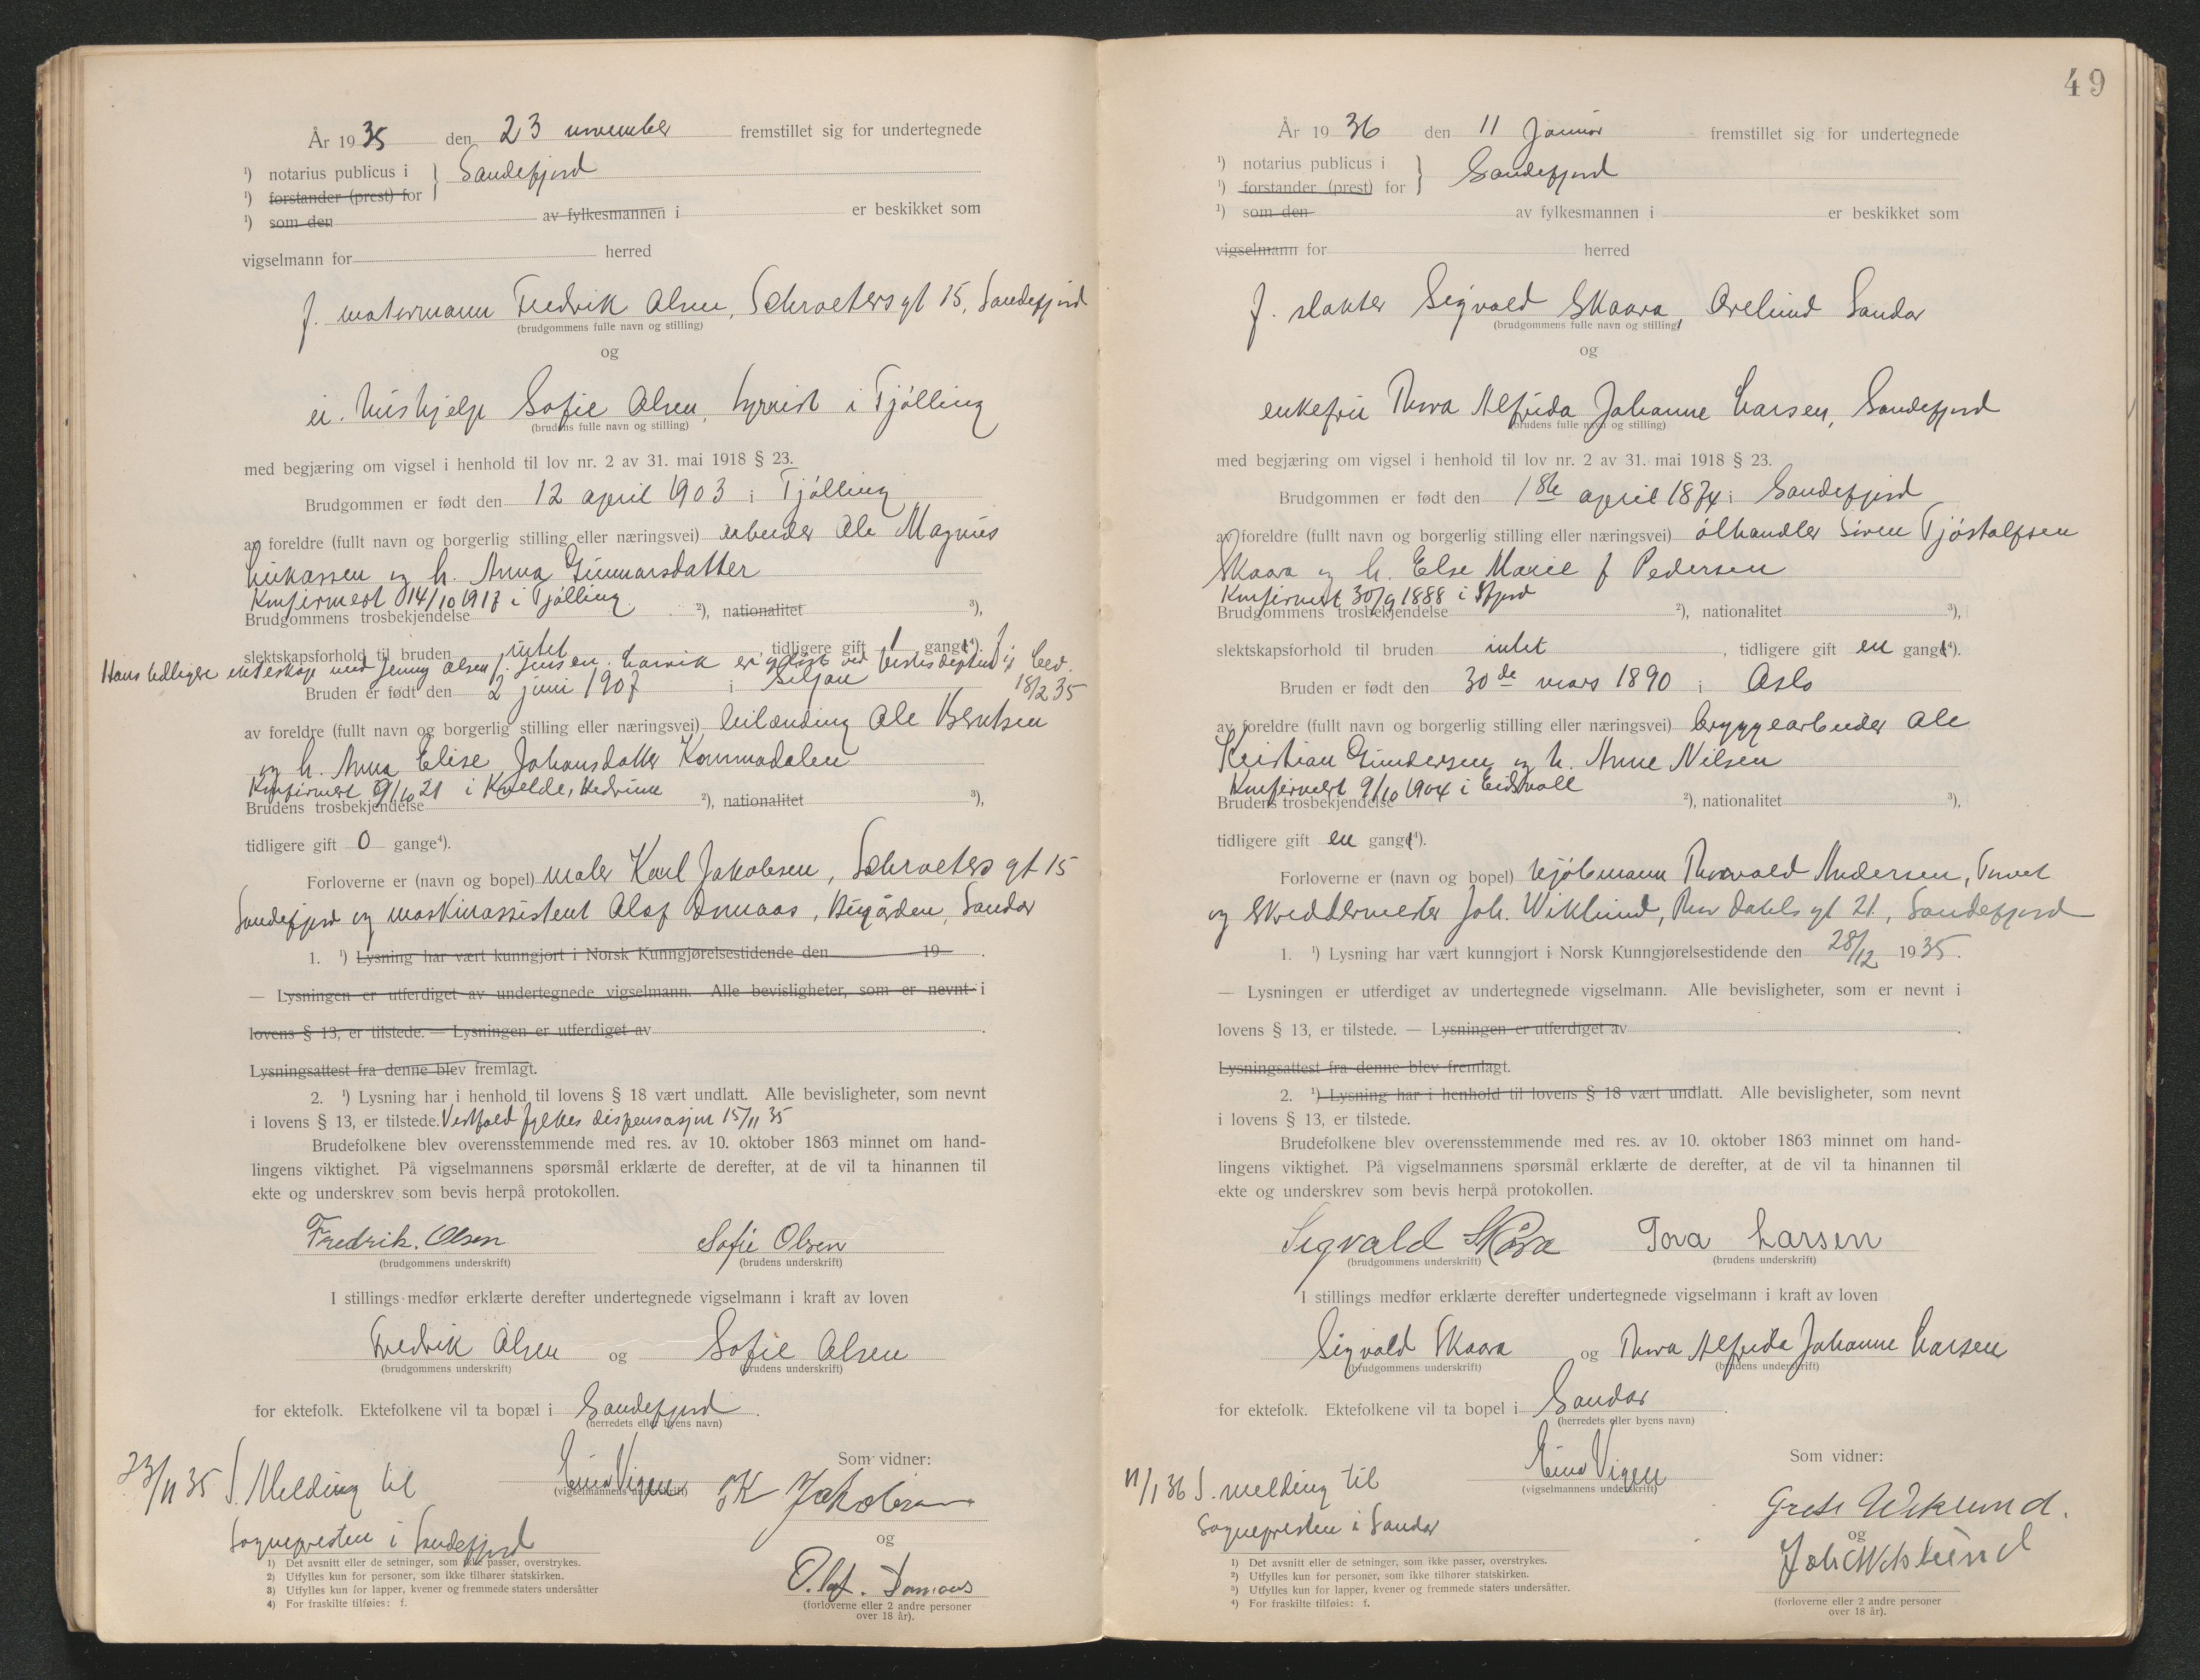 År 1935 den 23 november fremstillet sig for undertegnede
¹) notarius publicus i } Sandefjord
¹) forstander (prest) for
¹) som den av fylkesmannen i er beskikket som
vigselmann for herred
f. motormann Fredrik Olsen, Schroetersgt 15, Sandefjord
(brudgommens fulle navn og stilling)
og
ei. hushjelp Sofie Olsen, hjemst i Tjølling
(brudens fulle navn og stilling)
med begjæring om vigsel i henhold til lov nr. 2 av 31. mai 1918 § 23.
Brudgommen er født den 12 april 1903 i Tjølling
av foreldre (fullt navn og borgerlig stilling eller næringsvei) arbeider Ole Magnus
Lukassen og h. Anna Gunnarsdatter
Konfirmert 14/10 1917 i Tjølling
Brudgommens trosbekjendelse ²), nationalitet ³),
slektskapsforhold til bruden intet, tidligere gift 1 gang⁴). f
Hans tidligere ekteskap med Jenny Olsen f. Jensen. Larvik er opløst ved Justisdeptmts bev.
18/2 35
Bruden er født den 2 juni 1907 i Siljan
av foreldre (fullt navn og borgerlig stilling eller næringsvei) leilending Ole Berntsen
og h. Anna Elise Johansdatter Kommadalen
Konfirmert 9/10 21 i Kvelde, Hedrum
Brudens trosbekjendelse ²), nationalitet ³),
tidligere gift 0 gange⁴).
Forloverne er (navn og bopel) maler Karl Jakobsen, Schroeters gt 15
Sandefjord og maskinassistent Olaf Domaas, Bugården, Sandar
1. ¹) Lysning har vært kunngjort i Norsk Kunngjørelsestidende den 19 .
— Lysningen er utferdiget av undertegnede vigselmann. Alle bevisligheter, som er nevnt i
lovens § 13, er tilstede. — Lysningen er utferdiget av .
Lysningsattest fra denne blev fremlagt.
2. ¹) Lysning har i henhold til lovens § 18 vært undlatt. Alle bevisligheter, som nevnt
i lovens § 13, er tilstede. Vestfold fylkes dispensasjon 15/11 35
Brudefolkene blev overensstemmende med res. av 10. oktober 1863 minnet om hand-
lingens viktighet. På vigselmannens spørsmål erklærte de derefter, at de vil ta hinannen til
ekte og underskrev som bevis herpå protokollen.
Fredrik. Olsen Sofie Olsen
(brudgommens underskrift) (brudens underskrift)
I stillings medfør erklærte derefter undertegnede vigselmann i kraft av loven
Fredrik Olsen og Sofie Olsen
(brudgommens underskrift) (brudens underskrift)
for ektefolk. Ektefolkene vil ta bopæl i Sandefjord .
(herredets eller byens navn)
Som vidner:
23/11 35 S. Melding til
Sognepresten i Sandefjord
Einar Vigen
(vigselmannens underskrift)
K Jakobsen
og
Olaf. Domaas
(forloverne eller 2 andre personer
over 18 år).
1) Det avsnitt eller de setninger, som ikke passer, overstrykes.
2) Utfylles kun for personer, som ikke tilhører statskirken.
3) Utfylles kun for lapper, kvener og fremmede staters undersåtter
4) For fraskilte tilføies: f.
49
År 1936 den 11 Januar fremstillet sig for undertegnede
¹) notarius publicus i } Sandefjord
¹) forstander (prest) for
¹) som den av fylkesmannen i er beskikket som
vigselmann for herred
f. slakter Sigvald Skaara, Orelund Sandar
(brudgommens fulle navn og stilling)
og
enkefru Thora Alfrida Johanne Larsen, Sandefjord
(brudens fulle navn og stilling)
med begjæring om vigsel i henhold til lov nr. 2 av 31. mai 1918 § 23.
Brudgommen er født den 1ste april 1874 i Sandefjord
av foreldre (fullt navn og borgerlig stilling eller næringsvei) ølhandler Søren Tjøstolfsen
Skaara og h. Else Marie f Pedersen
Konfirmert 30/9 1888 i Sfjord
Brudgommens trosbekjendelse ²), nationalitet ³),
slektskapsforhold til bruden intet, tidligere gift en gang⁴).
Bruden er født den 30de mars 1890 i Oslo
av foreldre (fullt navn og borgerlig stilling eller næringsvei) bryggearbeider Ole
Kristian Gundersen og h. Anne Nilsen
Konfirmert 9/10 1904 i Eidsvoll
Brudens trosbekjendelse ²), nationalitet ³),
tidligere gift en gang⁴).
Forloverne er (navn og bopel) kjøbmann Thorvald Andersen, Torvet
og Skreddermester Joh. Wiklund, Thor Dahls gt 21, Sandefjord
1. ¹) Lysning har vært kunngjort i Norsk Kunngjørelsestidende den 28/12 1935.
— Lysningen er utferdiget av undertegnede vigselmann. Alle bevisligheter, som er nevnt i
lovens § 13, er tilstede. — Lysningen er utferdiget av .
Lysningsattest fra denne blev fremlagt.
2. ¹) Lysning har i henhold til lovens § 18 vært undlatt. Alle bevisligheter, som nevnt
i lovens § 13, er tilstede.
Brudefolkene blev overensstemmende med res. av 10. oktober 1863 minnet om hand-
lingens viktighet. På vigselmannens spørsmål erklærte de derefter, at de vil ta hinannen til
ekte og underskrev som bevis herpå protokollen.
Sigvald Skåra Tora Larsen
(brudgommens underskrift) (brudens underskrift)
I stillings medfør erklærte derefter undertegnede vigselmann i kraft av loven
Sigvald Skaara og Thora Alfrida Johanne Larsen
(brudgommens underskrift) (brudens underskrift)
for ektefolk. Ektefolkene vil ta bopel i Sandar .
(herredets eller byens navn)
Som vidner:
11/1 36 S. melding til
Sognepresten i Sandar
Einar Vigen
(vigselmannens underskrift)
Grete Wiklund.
og
Joh Wiklund
(forloverne eller 2 andre personer
over 18 år).
1) Det avsnitt eller de setninger, som ikke passer, overstrykes.
2) Utfylles kun for personer, som ikke tilhører statskirken.
3) Utfylles kun for lapper, kvener og fremmede staters undersåtter.
4) For fraskilte tilføies: f.